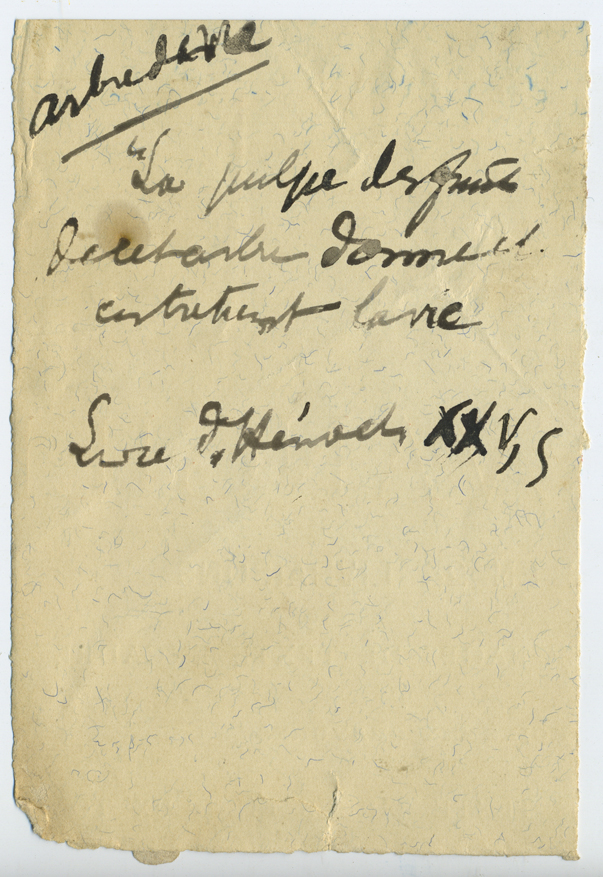 arbre de vie
"La pulpe des fruits
de cet arbre donne et
entretient la vie
Livre d'Hénoch XXV, 5